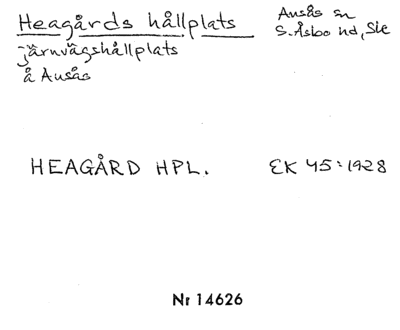 Heagårds hållplats
Ausås sn
S. Åsbo hd, Ske
järnvägshållplats
å Ausås
HEAGÅRD HPL.
EK 45:1928
Nr 14626